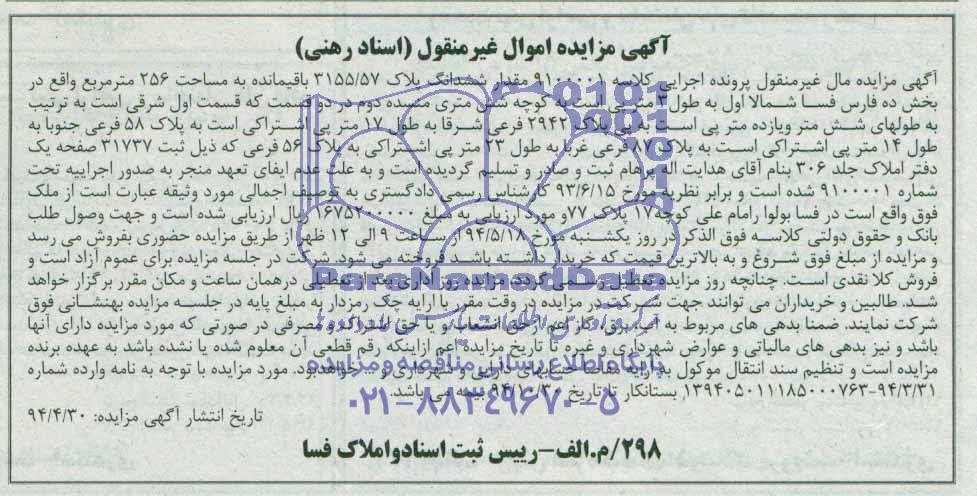 آگهی مزایده اموال غیرمنقول (اسناد رهنی)
آگهی مزایده مال غیرمنقول پرونده اجرایی کلاسه ۹۱۰۰۰۰۱ مقدار ششدانگ پلاک ۳۱۵۵/۵۷ باقیمانده به مساحت ۲۵۶ مترمربع واقع در
بخش ده فارس فسا شمالا اول به طول ۳ متر پی است به کوچه شش متری منسده دوم در دو قسمت که قسمت اول شرقی است به ترتیب
به طولهای شش متر ویازده متر پی است به پی پلاک ۲۹۴۲ فرعی شرقا به طول ۱۷ متر پی اشتراکی است به پلاک ۵۸ فرعی جنوبا به
طول ۱۴ متر پی اشتراکی است به پلاک ۸۷ فرعی غربا به طول ۲۳ متر پی اشتراکی به پلاک ۵۶ فرعی که ذیل ثبت ۳۱۷۳۷ صفحه یک
دفتر املاک جلد ۳۰۶ بنام آقای هدایت اله پرهام ثبت و صادر و تسلیم گردیده است و به علت عدم ایفای تعهد منجر به صدور اجراییه تحت
شماره ۹۱۰۰۰۰۱ شده است و برابر نظریه مورخ ۹۳/۶/۱۵ کارشناس رسمی دادگستری به توصیف اجمالی مورد وثیقه عبارت است از ملک
فوق واقع است در فسا بولوا رامام علی کوچه۱۷ پلاک ۷۷و مورد ارزیابی به مبلغ ۱۶۷۵۲۰۰۰۰۰ ریال ارزیابی شده است و جهت وصول طلب
بانک و حقوق دولتی کلاسه فوق الذکر در روز یکشنبه مورخ ۹۴/۵/۱۸ از ساعت ۹ الی ۱۲ ظهر از طریق مزایده حضوری بفروش می رسد
و مزایده از مبلغ فوق شروع و به بالاترین قیمت که خریدار داشته باشد فروخته می شود. شرکت در جلسه مزایده برای عموم آزاد است و
فروش کلا نقدی است. چنانچه روز مزایده تعطیل رسمی گردد، مزایده روز اداری بعد از تعطیلی درهمان ساعت و مکان مقرر برگزار خواهد
شد. طالبین و خریداران می توانند جهت شرکت در مزایده در وقت مقرر با ارایه چک رمزدار به مبلغ پایه در جلسه مزایده بهنشانی فوق
شرکت نمایند. ضمنا بدهی های مربوط به آب، برق، گاز اعم ازحق انشعاب و یا حق اشتراک و مصرفی در صورتی که مورد مزایده دارای آنها
باشد و نیز بدهی های مالیاتی و عوارض شهرداری و غیره تا تاریخ مزایده اعم ازاینکه رقم قطعی آن معلوم شده یا نشده باشد به عهده برنده
مزایده است و تنظیم سند انتقال موکول به ارایه مفاصا حسابهای دارایی و شهرداری و ... خواهدبود. مورد مزایده با توجه به نامه وارده شماره
۱۳۹۴۰۵۰۱۱۱۸۵۰۰۰۷۶۳-۹۴/۳/۳۱, بستانکار تا تاریخ ۹۴/۱۰/۳۰ بیمه می باشد.
تاریخ انتشار آگهی مزایده: ۹۴/۴/۳۰
۲۹۸/م.الف-رییس ثبت اسنادواملاک فسا
ParsNamadData
پایگاه اطلاع رسانی مناقصه و مزایده
۰۲۱-۸۸۳۴۹۶۷۰-۵